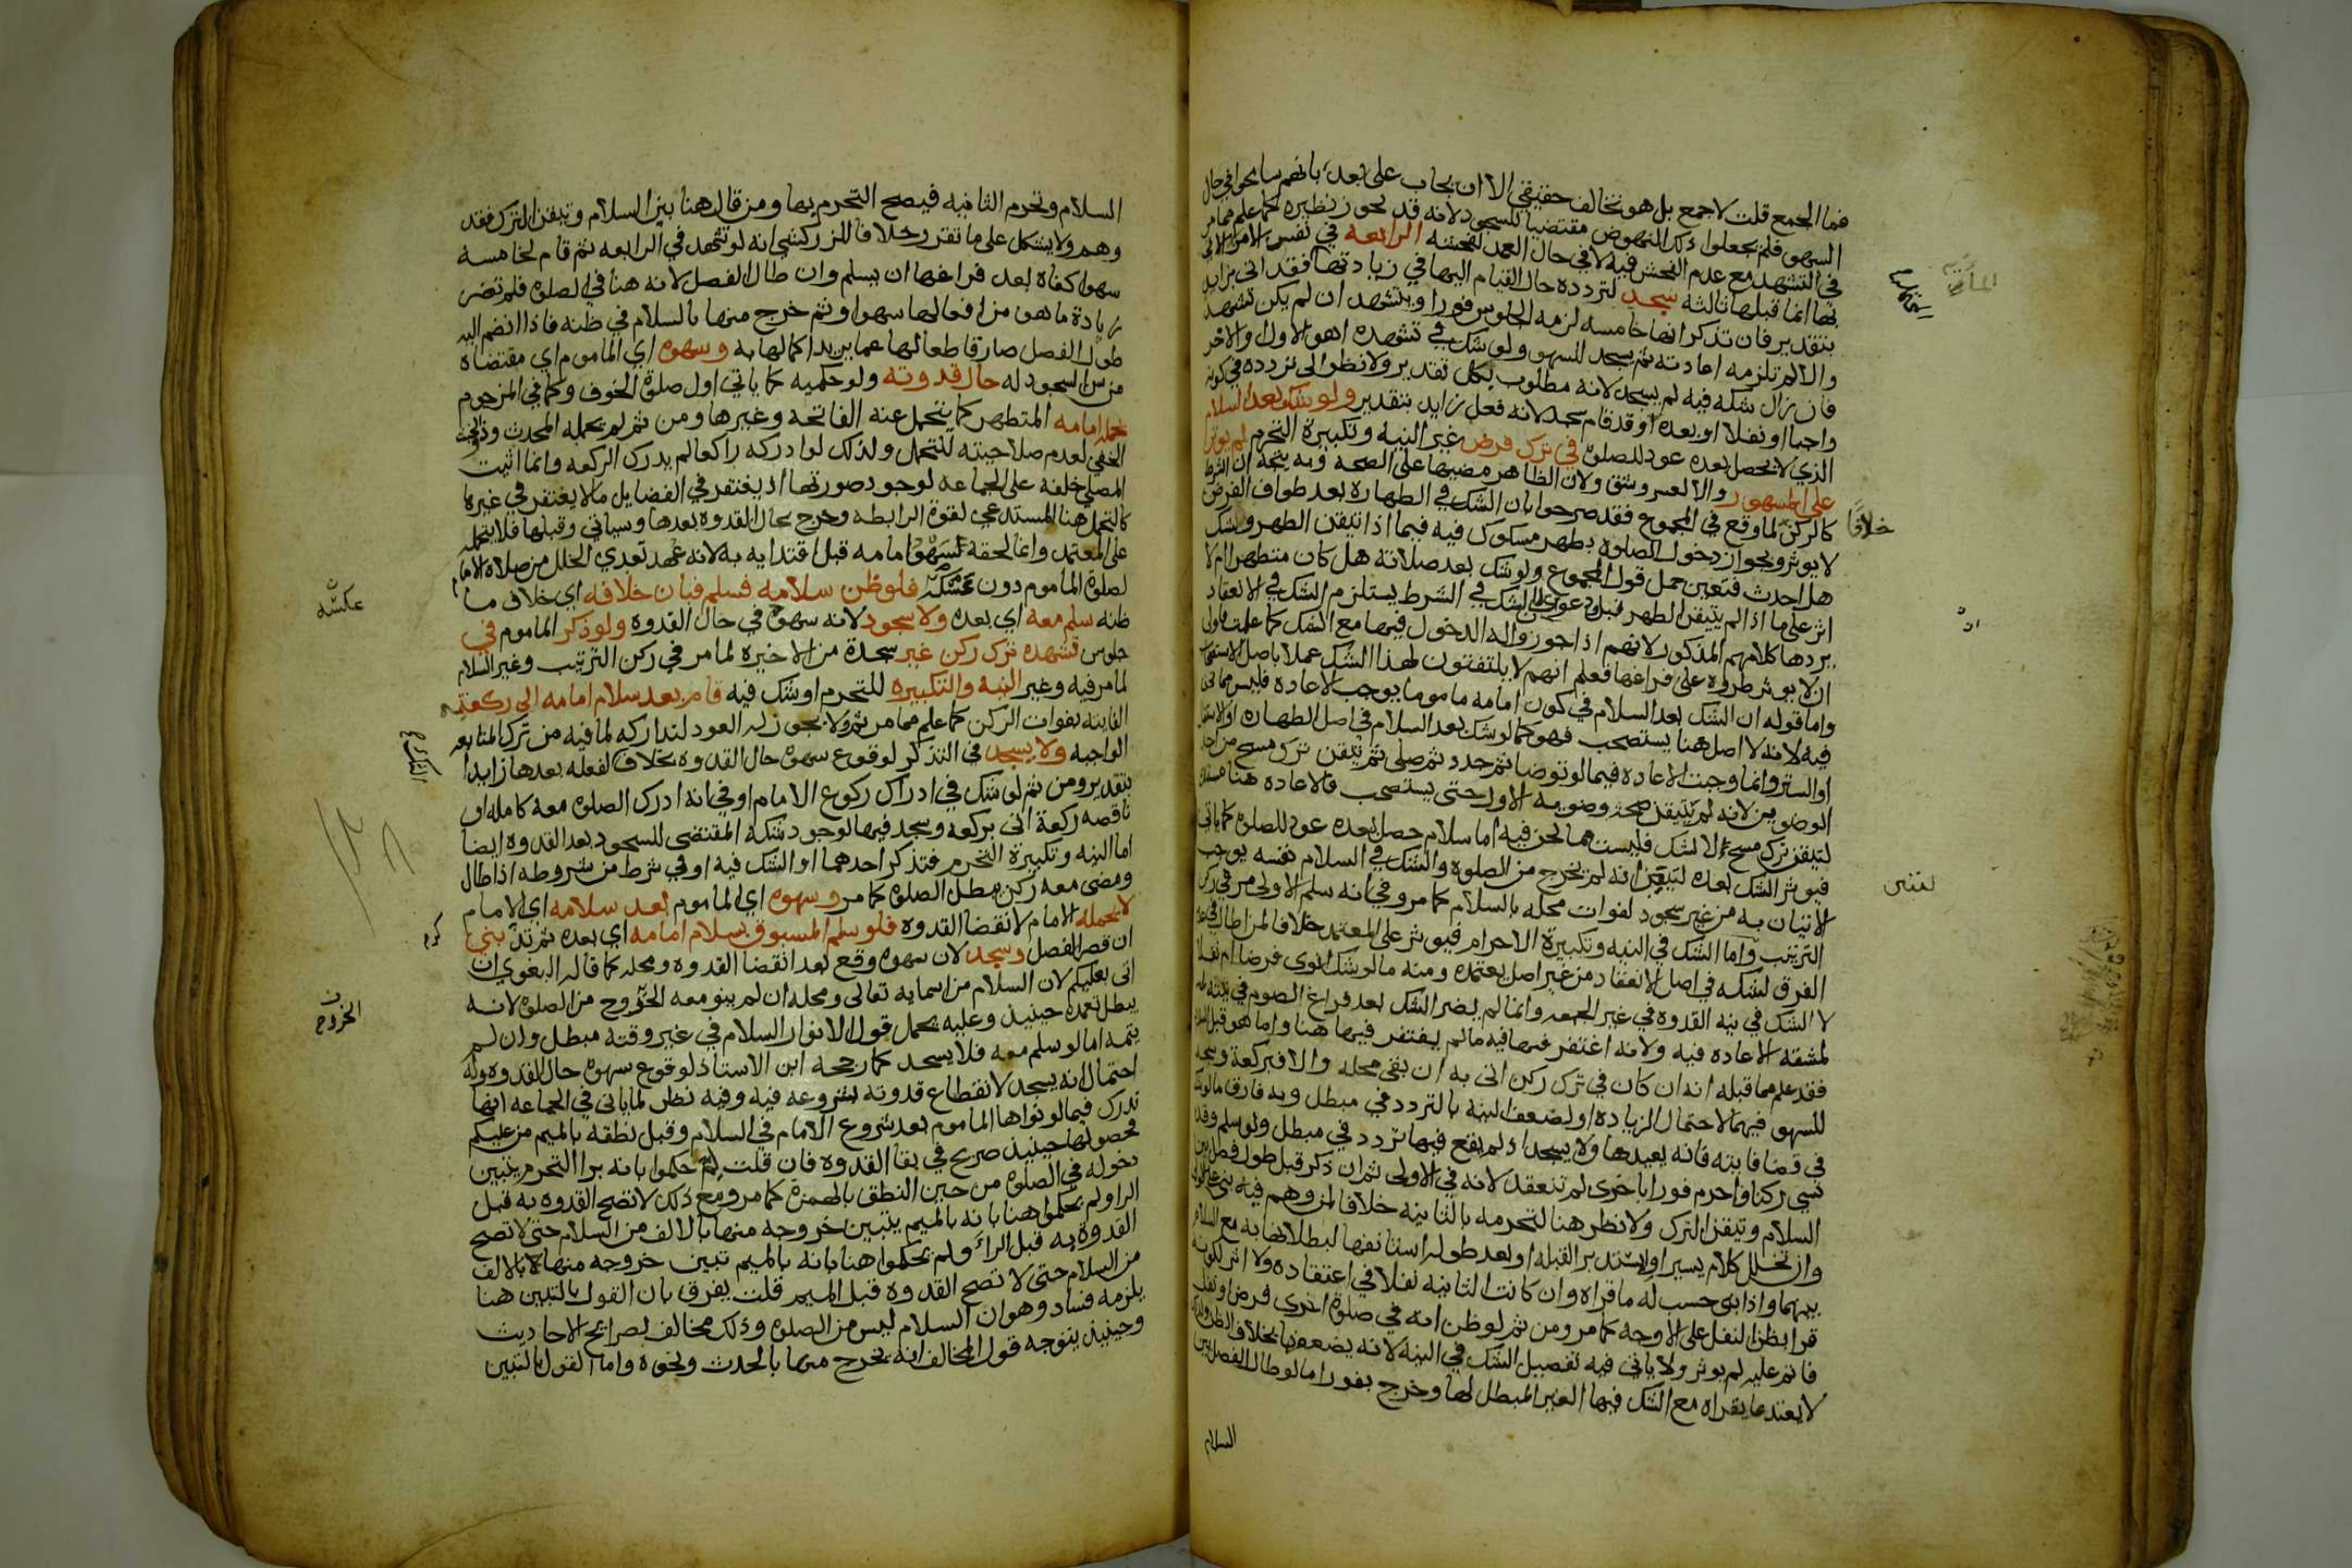 فما الجمع قلت لا جمع بل هو تخالف حقيقي الا ان يجاب على بعد بانهم سامحوا في حال
السهو فلم يجعلوا ذلك النهوض مقتضيا للسجود لانه قد يجوز نظيره كما علم مما مر
في التشهد مع عدم الفحش فيه لا في حال العمد لفحشه الرابعه في نفس الامر
بها انما قبلها ثالثه سجد لتردده حال القيام اليها في زيادتها فقد اتى بزايد
بتقدير فان تذكر انها خامسه لزمه الجلوس فورا ويتشهد ان لم يكن تشهد
والا لم تلزمه اعادته ثم يسجد للسهو ولو شك في تشهده اهو الاول والاخر
فان زال شكه فيه لم يسجد لانه مطلوب بكل تقدير ولا نظر الى تردده في كونه
واجبا او نفلا او بعده وقد قام سجد لانه فعل زايد بتقدير ولو شك بعد السلام
الذي لا يحصل بعده عود للصلوة في ترك فرض غير النيه وتكبيرة التحرم لم يوثر
على المشهور والا لعسر وشق ولان الظاهر مضيها على الصحه وبه يتجه ان الشرط
كالركن لما وقع في المجموع فقد صرحوا بان الشك في الطهاره بعد طواف الفرض
لا يوثر وبجواز دخول الصلوه بطهر مشكوك فيه فيما اذا تيقن الطهر وشك
هل احدث فتعين حمل قول المجموع ولو شك بعد صلاته هل كان متطهرا ام لا
اثر على ما اذا لم يتيقن الطهر قبل ودعوى ان الشك في الشرط يستلزم الشك في الانعقاد
يردها كلامهم المذكور لانهم اذا جوزوا له الدخول فيها مع الشك كما علمت فاولى
ان لا يوثر طروه على فراغها فعلم انهم لا يلتفتون لهذا الشك عملا باصل الاستصحاب
واما قوله ان الشك بعد السلام في كون امامه ماموما يوجب الاعاده فليس مما نحن
فيه لانه لا اصل هنا يستصحب فهو كما لو شك بعد السلام في اصل الطهاره او الاستقبال
او الستر وانما وجبت الاعاده فيما لو توضا ثم جدد ثم صلى ثم تيقن ترك مسح من احد
الوضوين لانه لم يتيقن صحة وضويه الاول حتى يستصحب فالاعاده هنا مستندة
لتيقن ترك مسح لا لشك فليست مما نحن فيه اما سلام حصل بعده عود للصلوه كما ياتي
فيوثر الشك بعده لتبين انه لم يخرج من الصلوه والشك في السلام نفسه يوجب
الاتيان به من غير سجود لفوات محله بالسلام كما مر وفي انه سلم الاولى مر في ركن
الترتيب واما الشك في النيه وتكبيرة الاحرام فيوثر على المعتمد خلافا لمن اطال في عدم
الفرق لشكه في اصل الانعقاد من غير اصل يعتمده ومنه ما لو شك انوى فرضا ام نفلا
لا الشك في نيه القدوه في غير الجمعه وانما لم يضر الشك بعد فراغ الصوم في نيته
لمشقه الاعاده فيه ولانه اغتفر فيها فيه ما لم يغتفر فيها هنا واما هو قبل السلام
فقد علم مما قبله انه ان كان في ترك ركن اتى به ان بقي محله والا فبركعة وسجد
للسهو فيهما لاحتمال الزياده او لضعف النيه بالتردد في مبطل وبه فارق ما لو شك
في قضا فايته فانه يعيدها ولا يسجد اذ لم يقع فيها تردد في مبطل ولو سلم وقد
نسي ركنا واحرم فورا باخرى لم تنعقد لانه في الاولى ثم ان ذكر قبل طول فصل بين
السلام وتيقن الترك ولا نظر هنا لتحرمه بالثانيه خلافا لمن وهم فيه بنى على الاولى
وان تخلل كلام يسير او استدبر القبله او بعد طوله استانفها لبطلانها به مع السلام
بينهما واذا بنى حسب له ما قراه وان كانت الثانيه نفلا في اعتقاده ولا اثر لكونه
قرا بظن النفل على الاوجه كما مر ومن ثم لو ظن انه في صلوة اخرى فرض او نفل
فاتم عليه لم يوثر ولا ياتي فيه تفصيل الشك في النيه لانه يضعفها بخلاف الظن
لا يعتد بما يقراه مع الشك فيها الغير المبطل لها وخرج بفورا ما لو طال الفصل بين
السلام
خلافا
ان
لغنى
السلام وتحرم الثانيه فيصح التحرم بها ومن قال هنا بين السلام وتيقن الترك فقد
وهم ولا يشكل على ما تقرر خلافا للزركشي انه لو تشهد في الرابعه ثم قام لخامسه
سهوا كفاه بعد فراغها ان يسلم وان طال الفصل لانه هنا في الصلوه فلم تضر
زيادة ما هو من افعالها سهوا وثم خرج منها بالسلام في ظنه فاذا انضم اليه
طول الفصل صار قاطعا لها عما يريد اكمالها به وسهوه اي الماموم اي مقتضاه
من سن السجود له حال قدوته ولو حكميه كما ياتي اول صلوة الخوف وكما في المزحوم
يحمله امامه المتطهر كما يتحمل عنه الفاتحه وغيرها ومن ثم لم يحمله المحدث وذو الخبث
الخفي لعدم صلاحيته للتحمل ولذلك لو ادركه راكعا لم يدرك الركعه وانما اثيب
المصلي خلفه على الجماعه لوجود صورتها اذ يغتفر في الفضايل ما لا يغتفر في غيرها
كالتحمل هنا المستدعي لقوة الرابطه وخرج بحال القدوه بعدها وسياتي وقبلها فلا يتحمله
على المعتمد وانما لحقه سهو امامه قبل اقتدايه به لانه عهد تعدي الخلل من صلاه الامام
لصلوة الماموم دون عكسه فلو ظن سلامه فسلم فبان خلافه اي خلاف ما
ظنه سلم معه اي بعده ولا سجود لانه سهوه في حال القدوه ولو ذكر الماموم في
جلوس تشهده ترك ركن غير سجدة من الاخيره لما مر في ركن الترتيب وغير السلام
لما مر فيه وغير النيه والتكبيره للتحرم او شك فيه قام بعد سلام امامه الى ركعته
الفايته بفوات الركن كما علم مما مر ثم ولا يجوز له العود لتداركه لما فيه من ترك المتابعه
الواجبه ولا يسجد في التذكر لوقوع سهوه حال القدوه بخلاف لفعله بعدها زايدا
بتقدير ومن ثم لو شك في ادراك ركوع الامام او في انه ادرك الصلوه معه كامله او
ناقصه ركعة اتى بركعه وسجد فيها لوجود شكه المقتضي للسجود بعد القدوه ايضا
اما النيه وتكبيرة التحرم فتذكر احدهما او الشك فيه او في شرط من شروطه اذا طال
ومضى معه ركن مبطل الصلوه كما مر وسهوه اي الماموم بعد سلامه اي الامام
لا يحمله الامام لانقضا القدوه فلو سلم المسبوق بسلام امامه اي بعده ثم تذكر بنى
ان قصر الفصل وسجد لان سهوه وقع بعد انقضا القدوه ومحله كما قاله البغوي ان
اتى بعليكم لان السلام من اسمايه تعالى ومحله ان لم ينو معه الخروج من الصلوه لانه
يبطل تعمده حينيذ وعليه يحمل قول الانوار السلام في غير وقته مبطل وان لم
يتمه اما لو سلم معه فلا يسجد كما رجحه ابن الاستاذ لوقوع سهوه حال القدوه وله
احتمال انه يسجد لانقطاع قدوته بشروعه فيه وفيه نظر لما ياتي في الجماعه انها
تدرك فيما لو نواها الماموم بعد شروع الامام في السلام وقبل نطقه بالميم من عليكم
فحصولها حينيذ صريح في بقا القدوه فان قلت لم حكموا بانه برا التحرم يتبين
دخوله في الصلوه من حين النطق بالهمزة كما مر ومع ذلك لا تصح القدوه به قبل
الرا ولم يحكموا هنا بانه بالميم يتبين خروجه منها بالالف من السلام حتى لا تصح
القدوة به قبل الراء ولم يحكموا هنا بانه بالميم تبين خروجه منها لا بالالف
من السلام حتى لا تصح القدوه قبل الميم قلت يفرق بان القول بالتبين هنا
يلزمه فساد وهو ان السلام ليس من الصلوه وذلك مخالف لصرايح الاحاديث
وحينيذ يتوجه قول المخالف انه يخرج منها بالحدث ونحوه واما القول بالتبين
عكسه
التذكر
الخروج